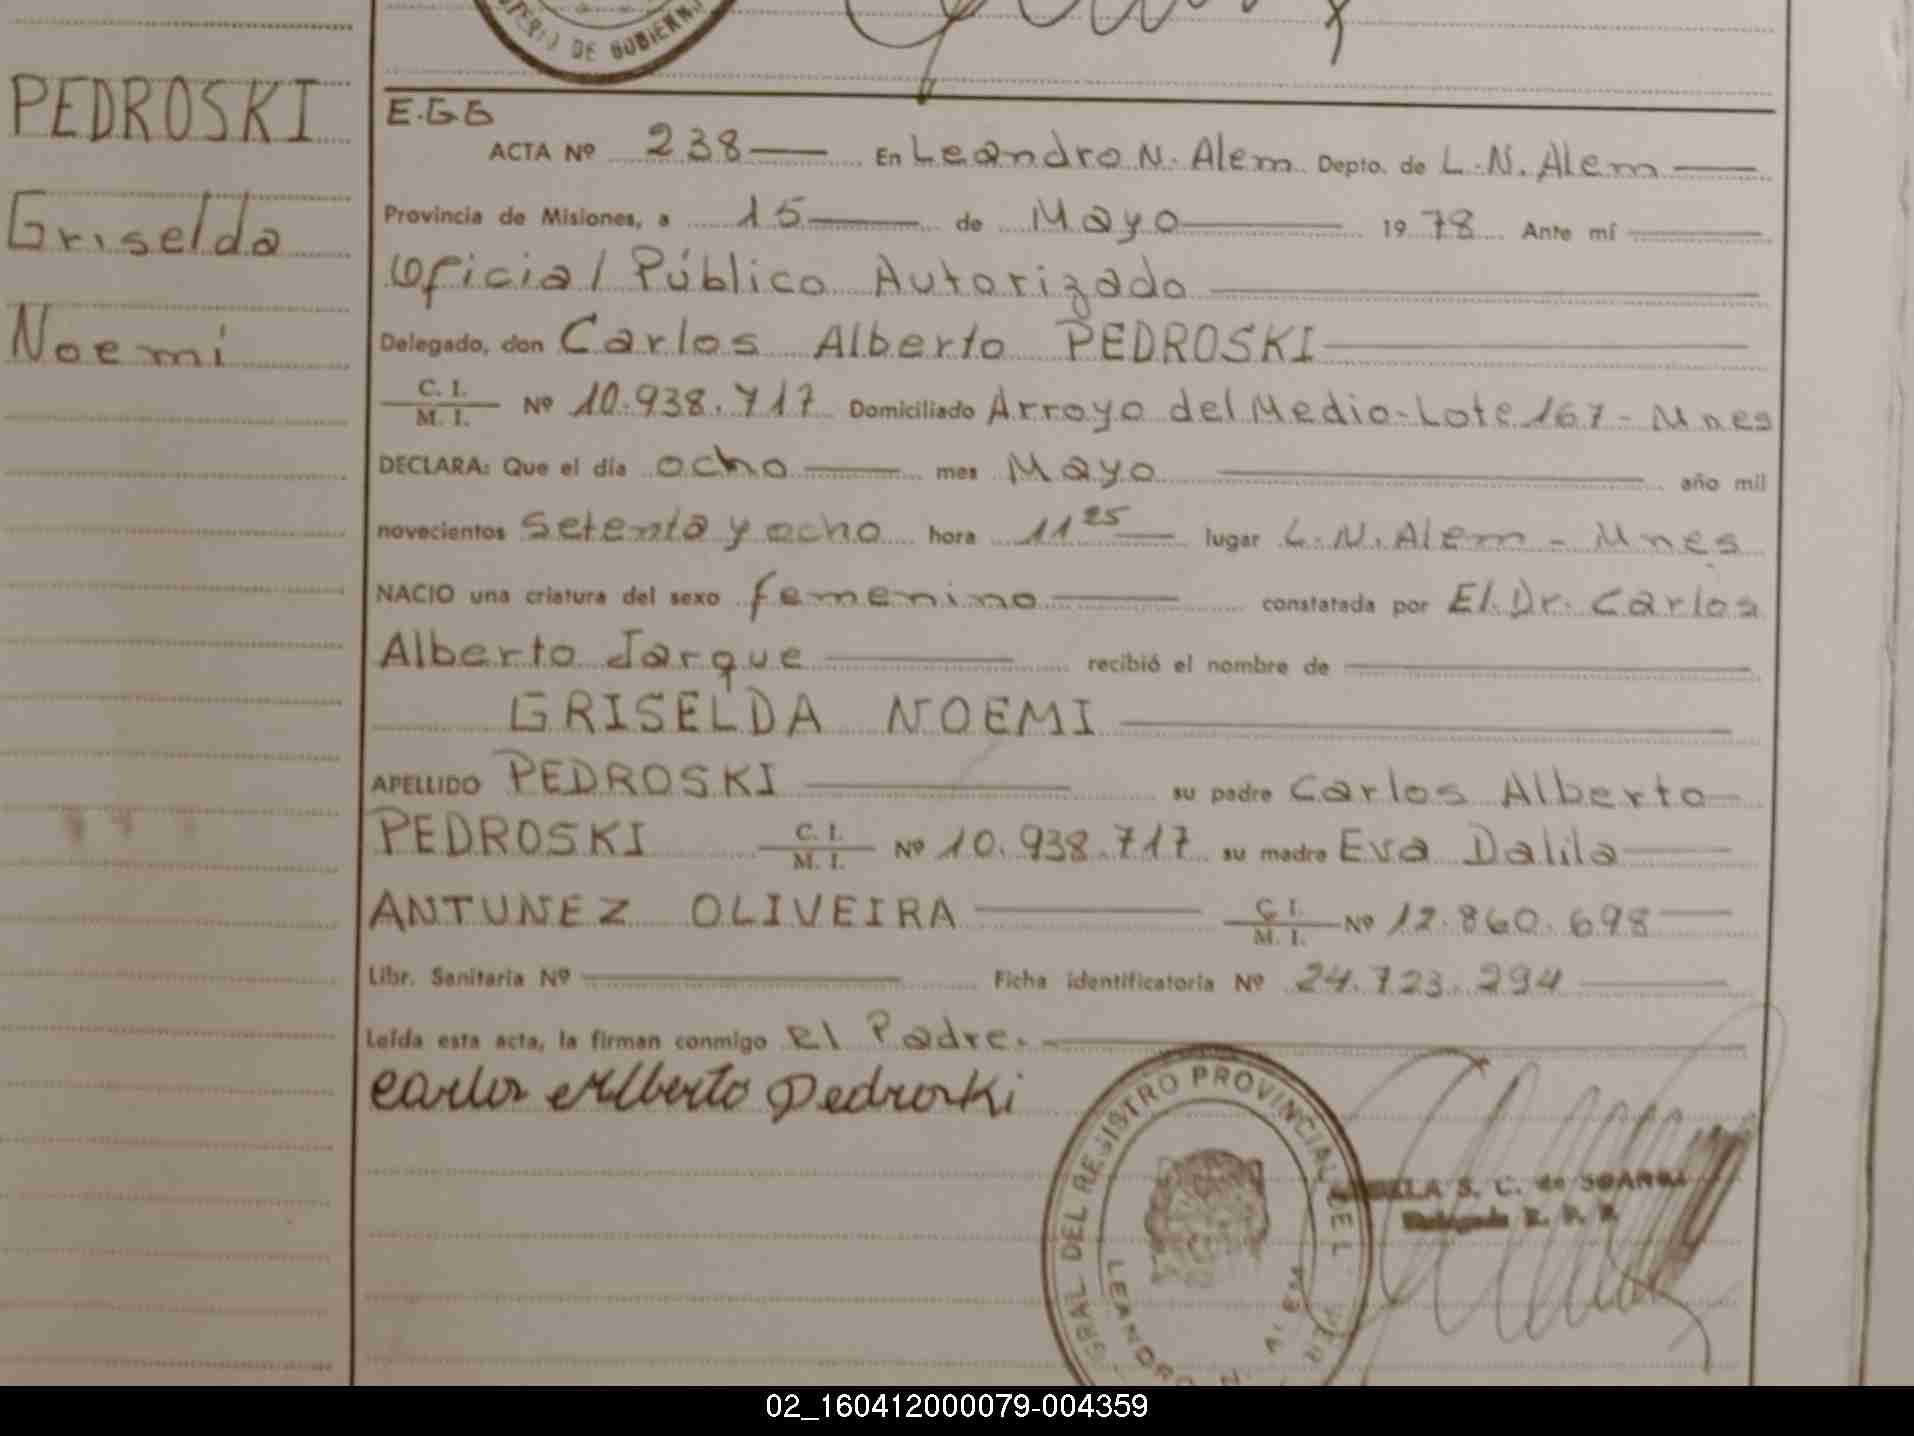 PEDROSKI
Griselda
Noemí
DE GOBIERN
E.G.G
ACTA Nº 238 En Leandro N. Alem Depto. de L.N. Alem
Provincia de Misiones, a 15 de Mayo 1978 Ante mí
Oficial Público Autorizado
Delegado, don Carlos Alberto PEDROSKI
C. I. / M. I. Nº 10.938.717 Domiciliado Arroyo del Medio-Lote 167- Mnes
DECLARA: Que el día ocho mes Mayo año mil
novecientos setenta y ocho hora 11 25 lugar L.N. Alem - Mnes
NACIO una criatura del sexo femenino constatada por El Dr. Carlos
Alberto Jarque recibió el nombre de
GRISELDA NOEMI
APELLIDO PEDROSKI su padre Carlos Alberto
PEDROSKI C. I. / M. I. Nº 10.938.717 su madre Eva Dalila
ANTUNEZ OLIVEIRA C. I. / M. I. Nº 12.860.698
Libr. Sanitaria Nº Ficha identificatoria Nº 24.723.294
Leída esta acta, la firman conmigo el Padre.
Carlos Alberto Pedroski
DEL REGISTRO PROVINCIAL DE L
LEANDRO N.
S. C. de
02_160412000079-004359